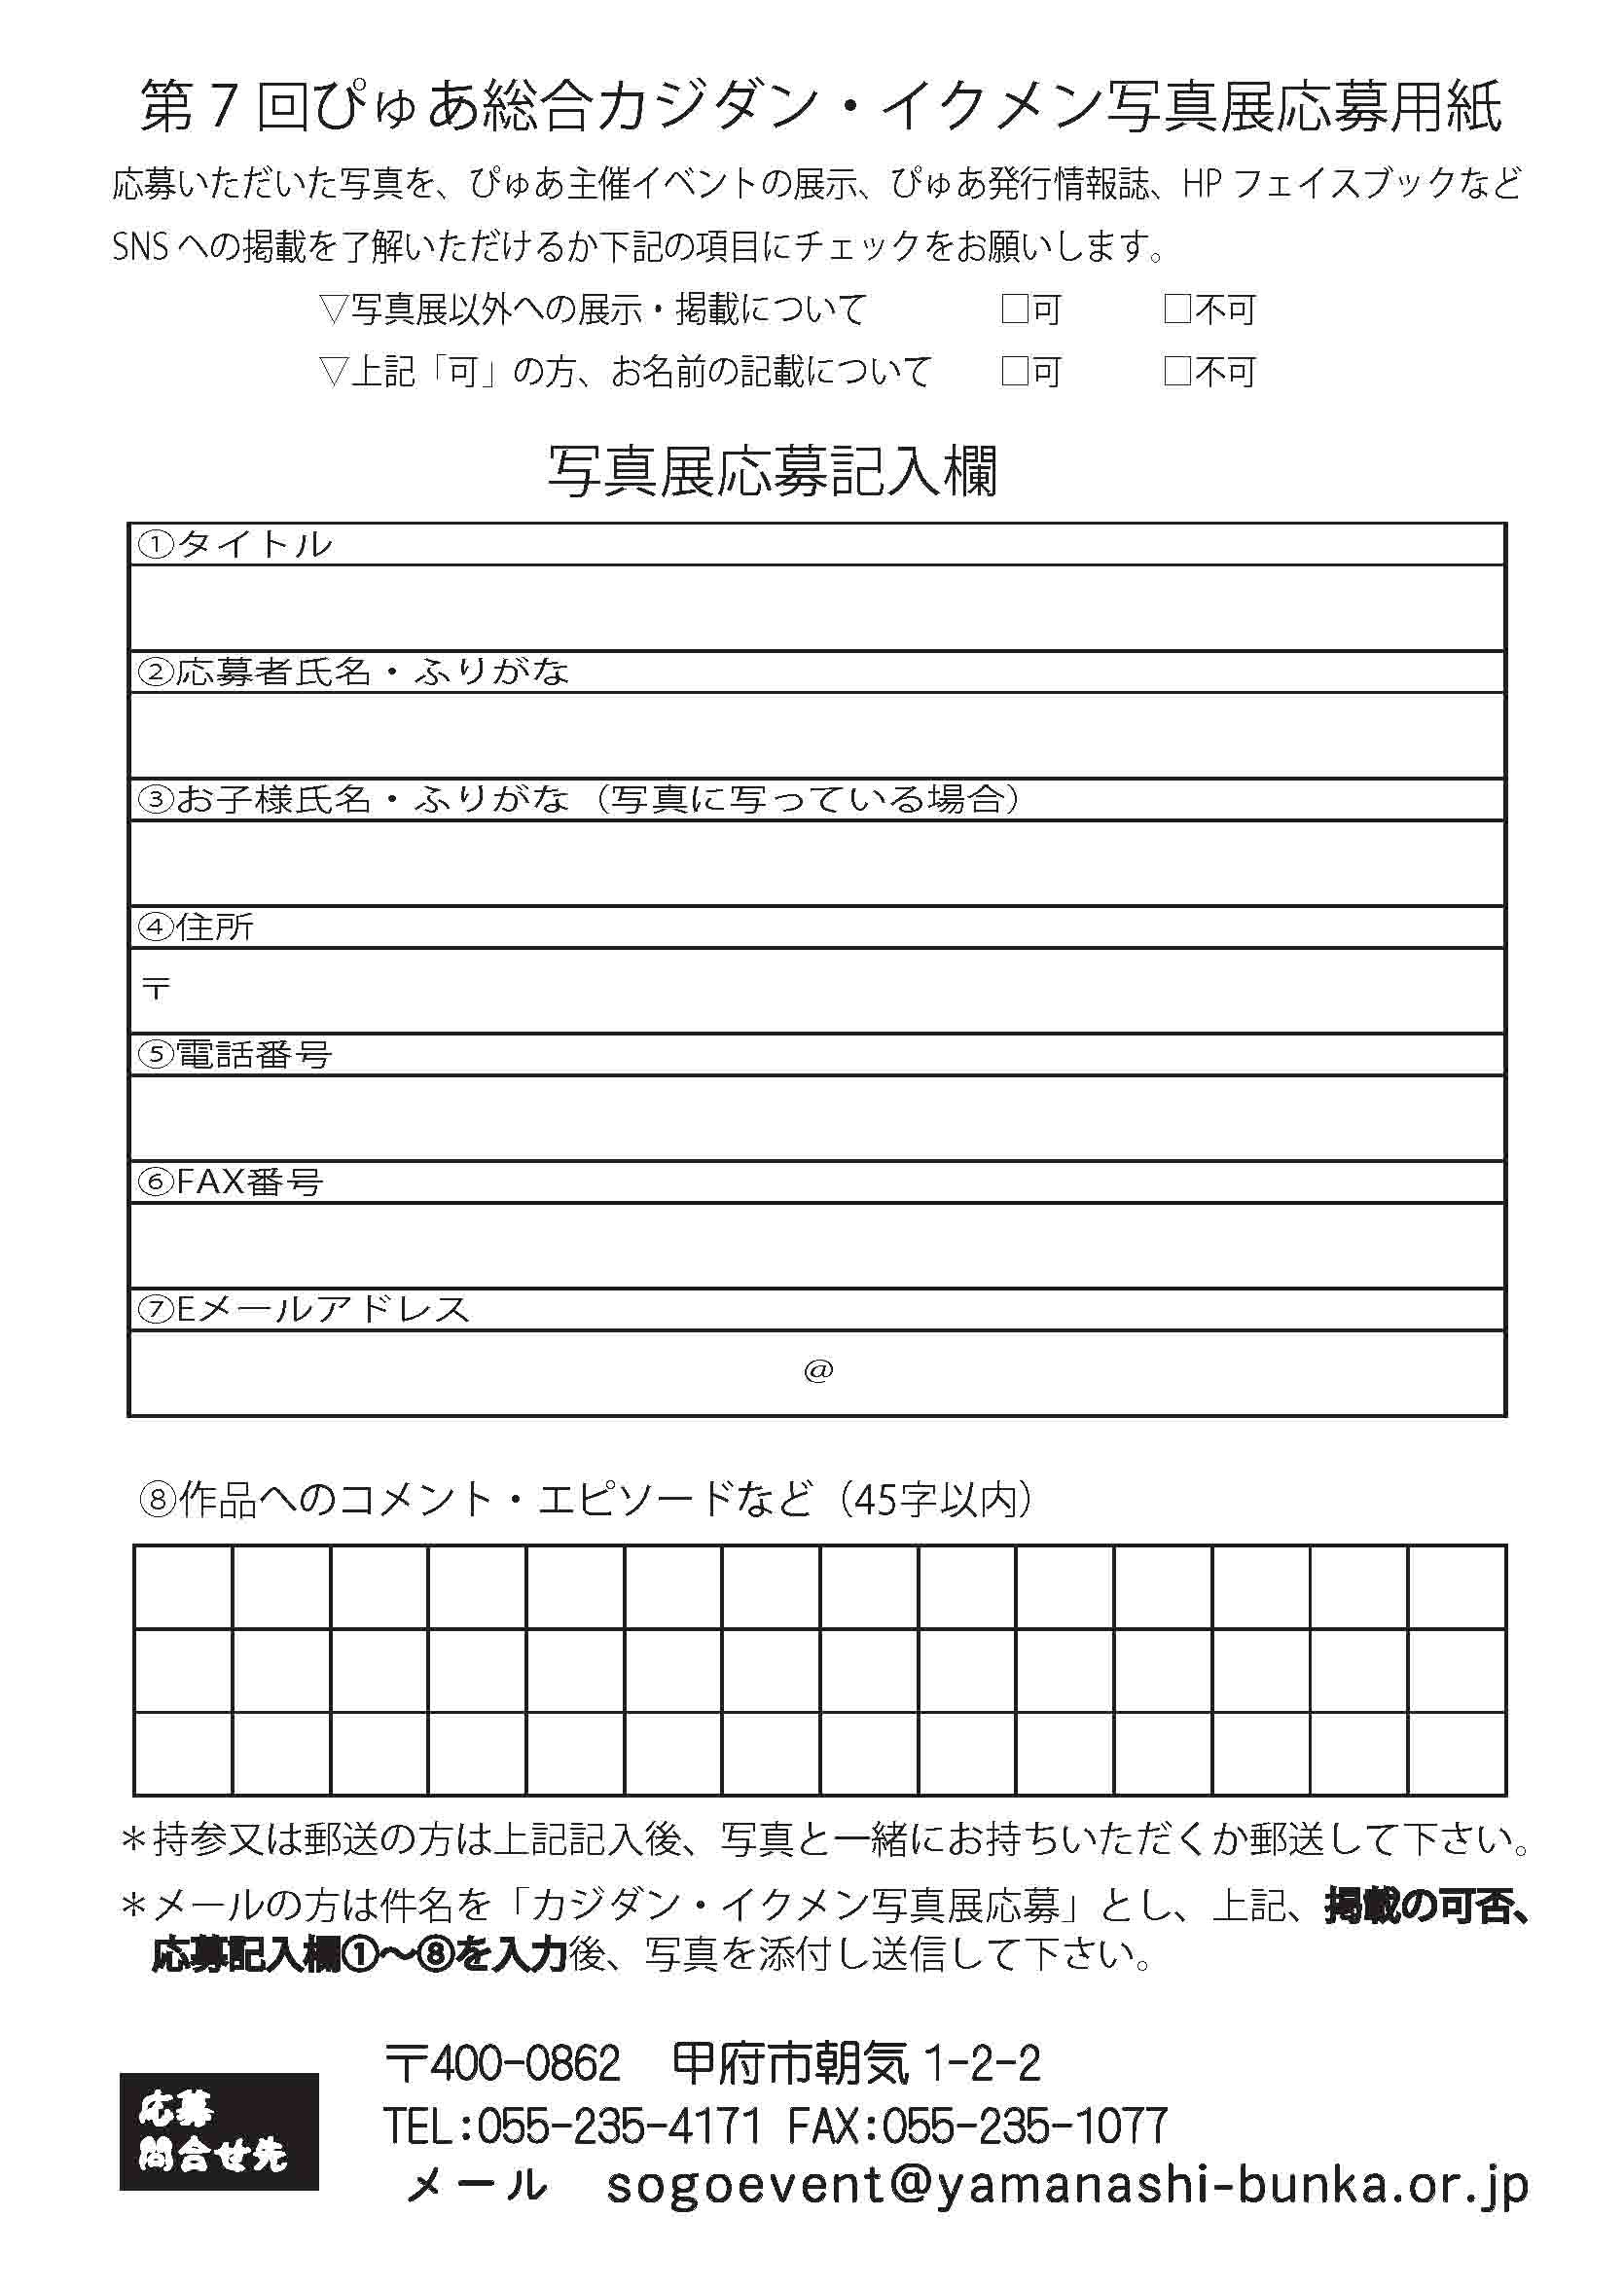 第７回ぴゅあ総合カジダン・イクメン写真展応募用紙
応募いただいた写真を、ぴゅあ主催イベントの展示、ぴゅあ発行情報誌、HP フェイスブックなど
SNS への掲載を了解いただけるか下記の項目にチェックをお願いします。
▽写真展以外への展示・掲載について　□可　□不可
▽上記「可」の方、お名前の記載について　□可　□不可
写真展応募記入欄
①タイトル
②応募者氏名・ふりがな
③お子様氏名・ふりがな（写真に写っている場合）
④住所
〒
⑤電話番号
⑥FAX番号
⑦Eメールアドレス
@
⑧作品へのコメント・エピソードなど（45字以内）
＊持参又は郵送の方は上記記入後、写真と一緒にお持ちいただくか郵送して下さい。
＊メールの方は件名を「カジダン・イクメン写真展応募」とし、上記、掲載の可否、
応募記入欄①～⑧を入力後、写真を添付し送信して下さい。
応募
問合せ先
〒400-0862　甲府市朝気 1-2-2
TEL:055-235-4171 FAX:055-235-1077
メール　sogoevent@yamanashi-bunka.or.jp